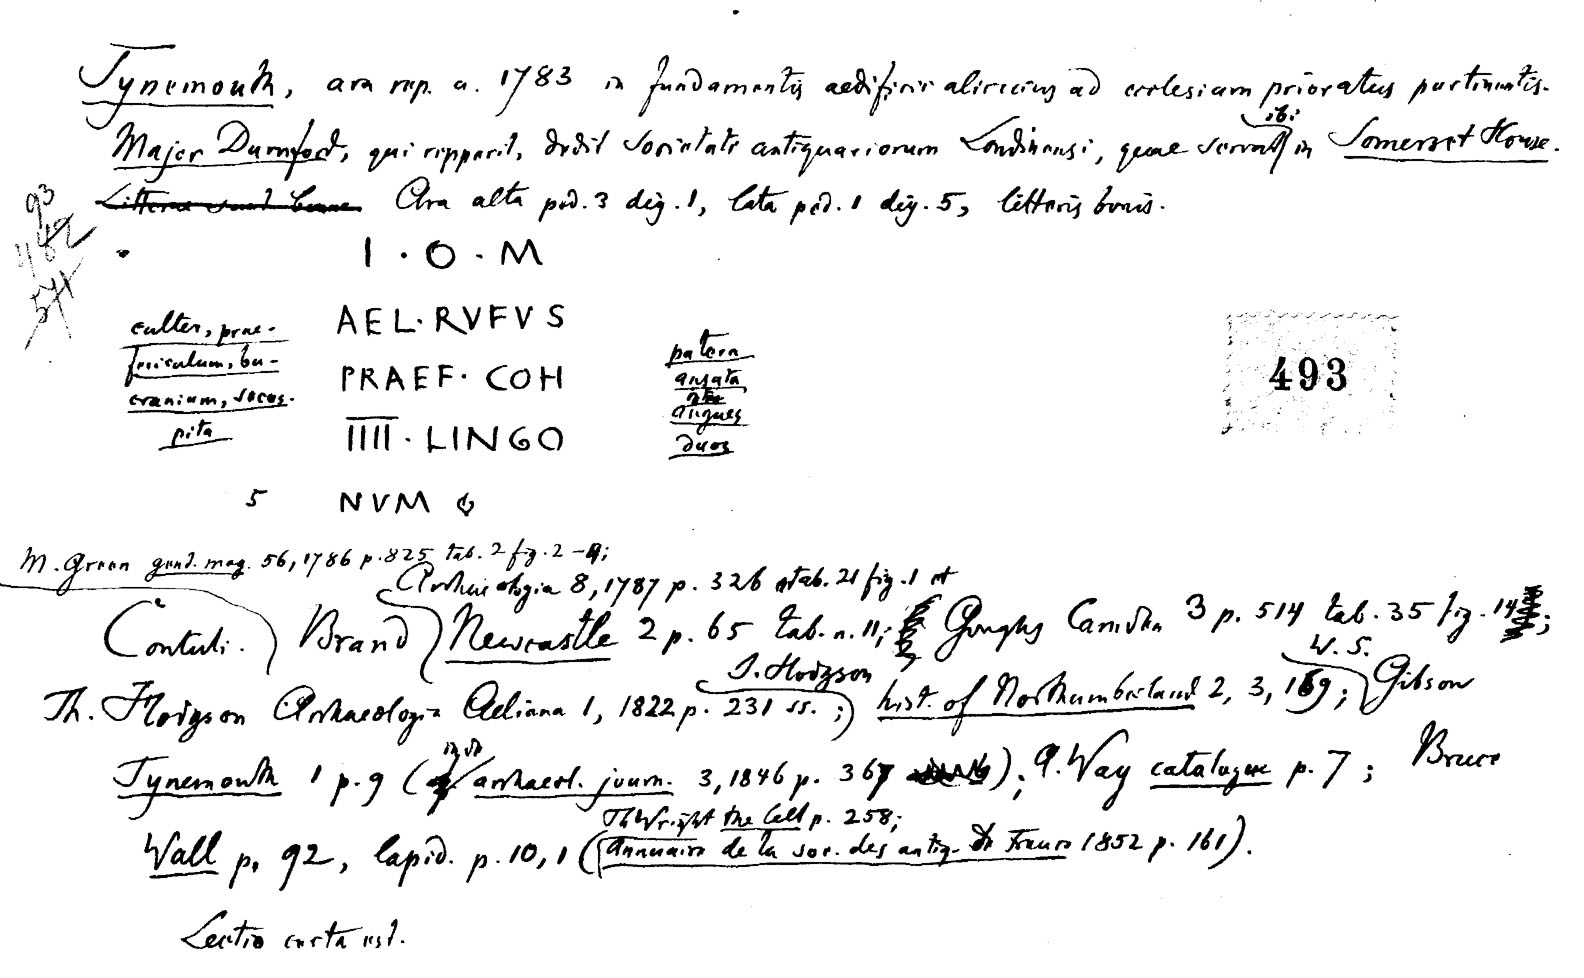 Tynemouth, ara rep. a. 1783 in fundamentis aedificii alicuius ad ecclesiam prioratus pertinentis.
ibi
Major Durnford, qui repperit, dedit societati antiquariorum Londinensi, quae servat in Somerset House.
Litterae sunt bonae. Ara alta ped. 3 dig. 1, lata ped. 1 dig. 5, litteris bonis.
93
482
I · O · M
culter, prae-
AEL · RVFVS
fericulum, bu-
patera
PRAEF · COH
ansata
493
cranium, seces-
angues
pita
IIII · LINGO
duos
5 NVM
M. Green gent. mag. 56, 1786 p. 825 tab. 2 fig. 2 - 4;
Archaeologia 8, 1787 p. 326 tab. 21 fig. 1 et
Contuli. Brand Newcastle 2 p. 65 tab. n. 11; Goughs Camden 3 p. 514 tab. 35 fig. 14;
J. Hodgson W. S.
Th. Hodgson Archaeologia Aeliana 1, 1822 p. 231 ss.; hist. of Northumberland 2, 3, 169; Gibson
Tynemouth 1 p. 9 (archaeol. journ. 3, 1846 p. 367); A. Way catalogue p. 7; Bruce
Th Wright the Celt p. 258;
Wall p. 92, lapid. p. 10, 1 (annuaire de la soc. des antiq. de France 1852 p. 161).
Lectio certa est.